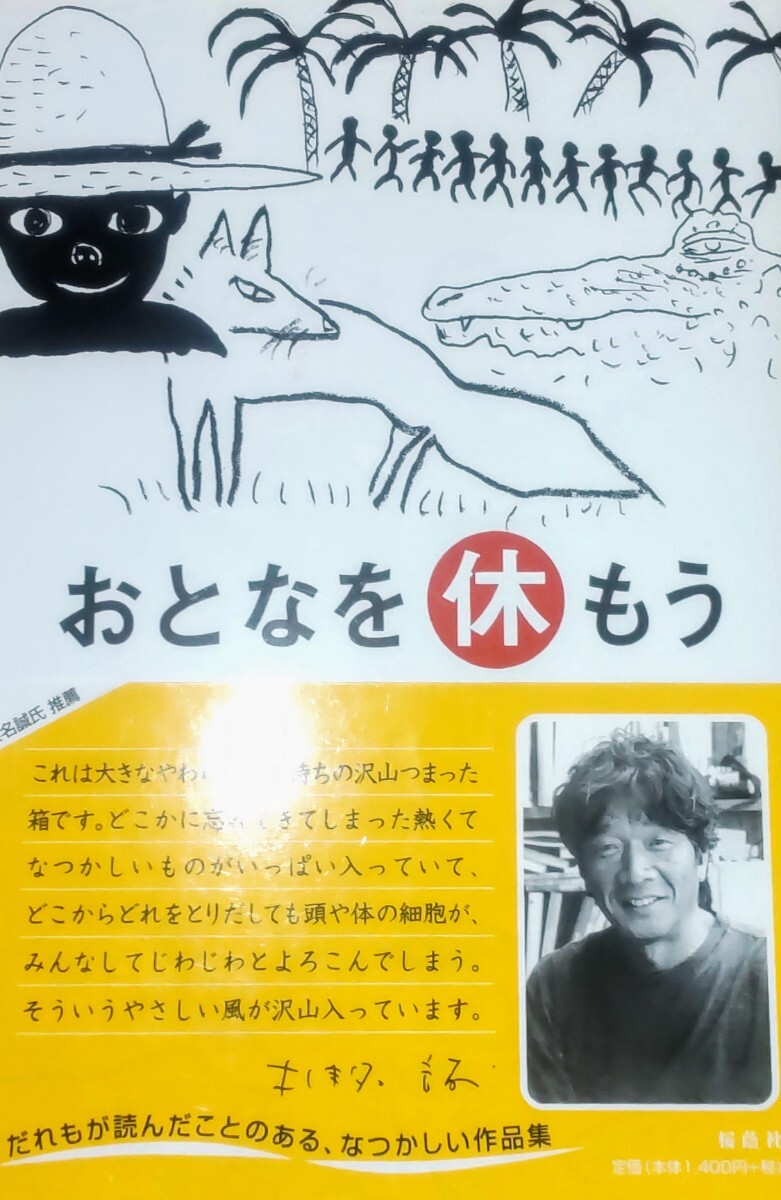 おとなを休もう
名誠氏 推薦
これは大きなやわ 持ちの沢山つまった
箱です。どこかに忘 きてしまった熱くて
なつかしいものがいっぱい入っていて、
どこからどれをとりだしても頭や体の細胞が、
みんなしてじわじわとよろこんでしまう。
そういうやさしい風が沢山入っています。
だれもが読んだことのある、なつかしい作品集
定価(本体1,400円+税)